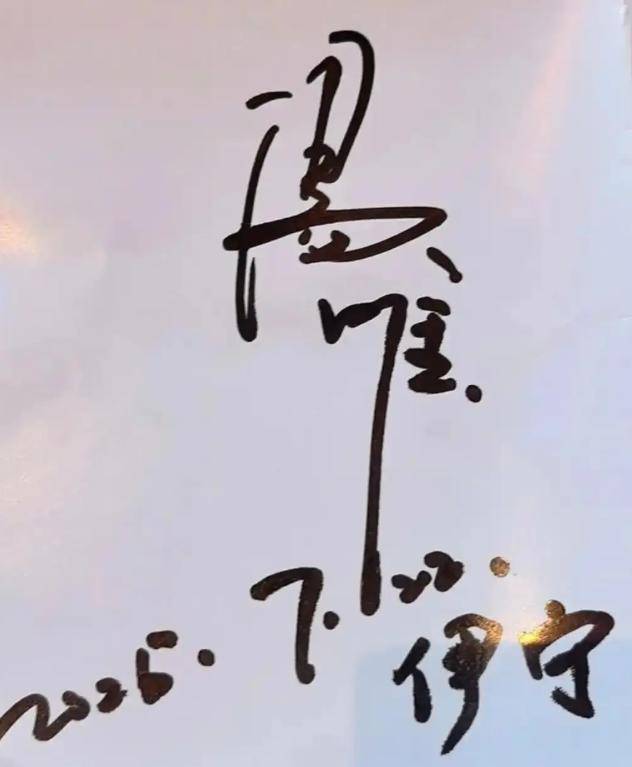 湯唯.
2025.7.22.
伊宁